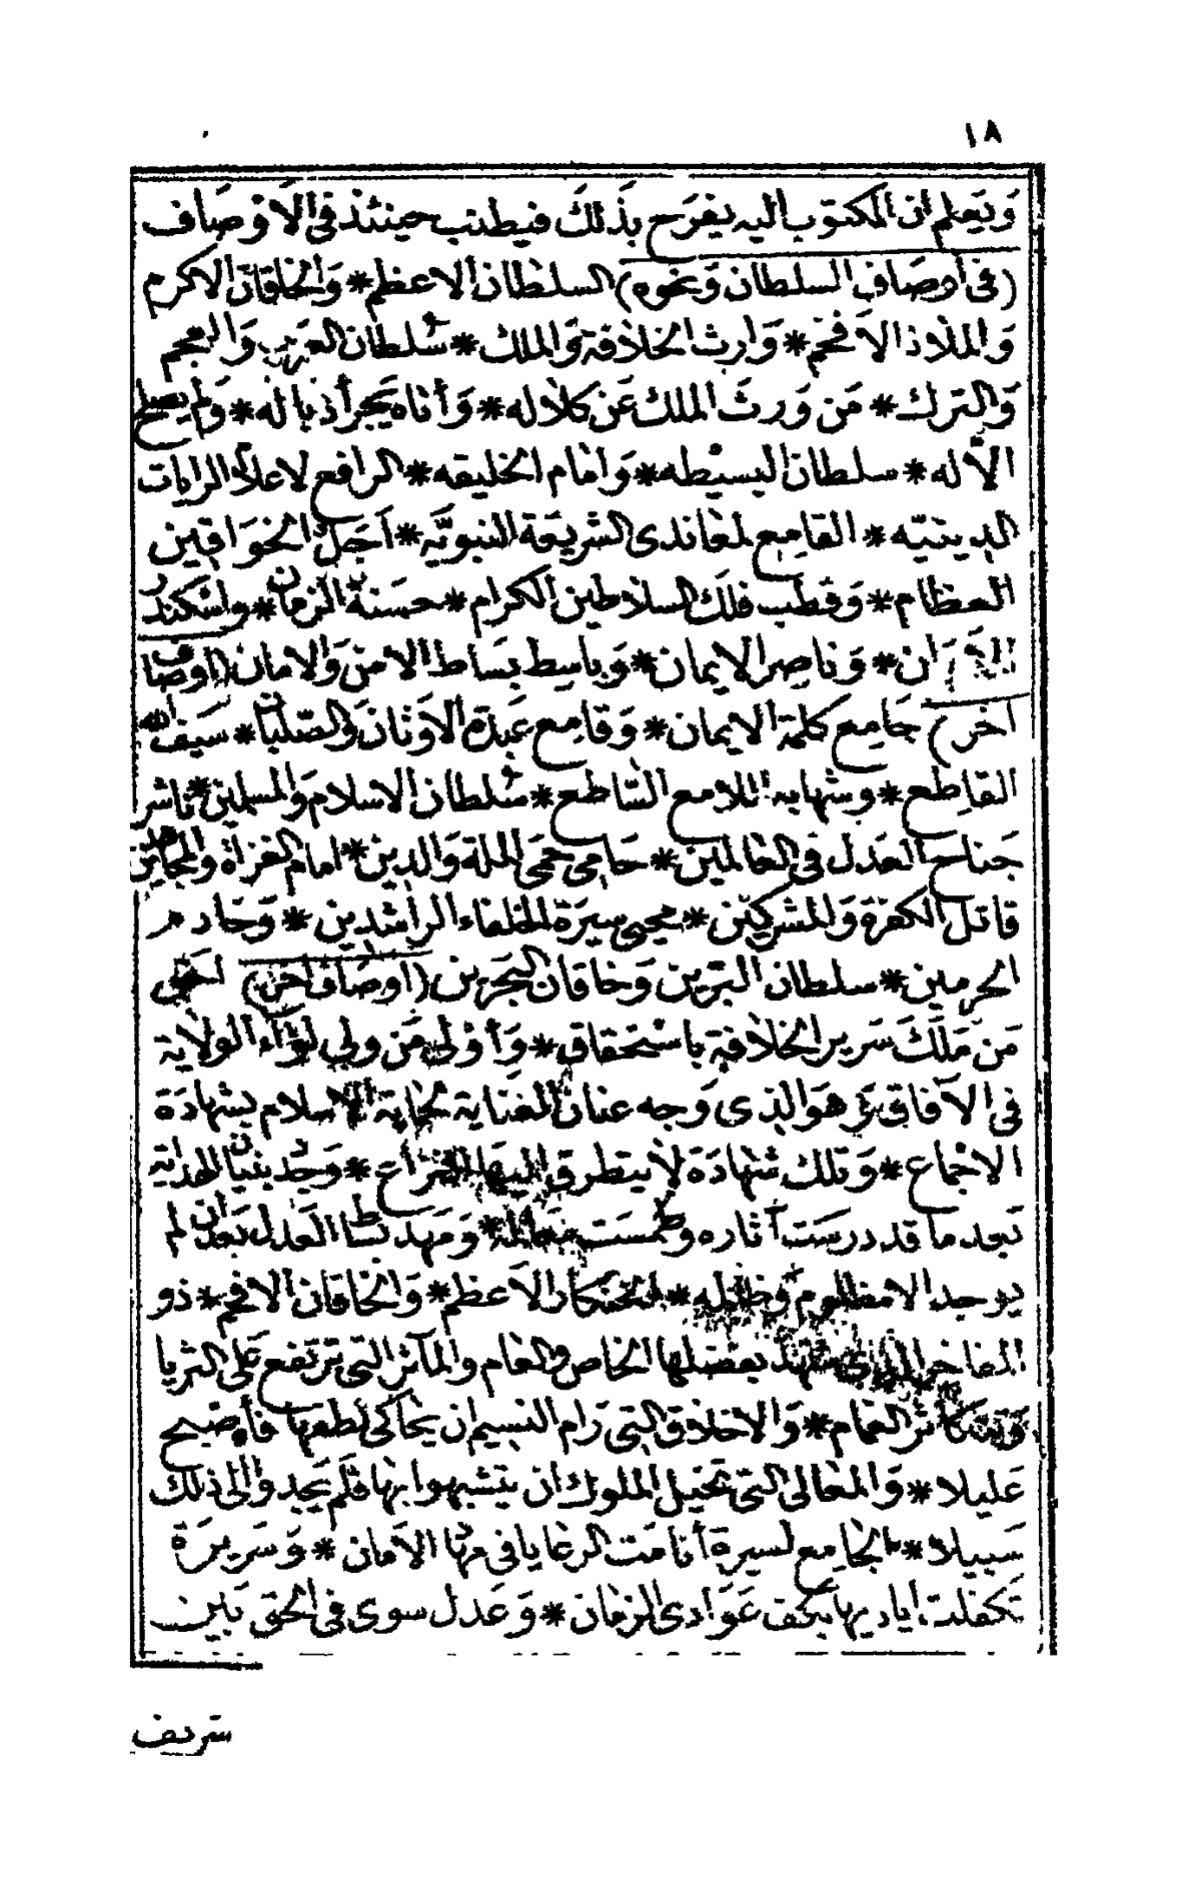 ١٨
وَيَعلم ان المكتوب اليه يفرَح بذَلكَ فيطنب حينئذ في الاَوصَاف
(في أوصَاف السلطان وَنحوه) السلطان الاعظم * وَالخاقان الاكرم
وَالملاذ الاَفخم * وَارث الخلافة وَالملك * سُلطان العَرب وَالعجم
وَالترك * مَن وَرثَ الملك عَن كلاله * وَأتاه يَجر أذياله * وَلم يصلح
الاَّله * سلطان البسيْطه * وَامام الخليقه * الرافع لاعلاَم الرايات
الدينيّه * القامِع لمعاندى الشريعَة النبويَّه * اَجَلّ الخوَاقين
العظام * وَقطب فلَك السلاطين الكرام * حسَنة الزمان * واسْكندر
ان * وَناصِر الايمان * وَباسِط بسَاط الامن وَالامان (اوصَاف
اخرى) جَامِع كلمة الايمان * وَقامِع عَبَدة الاَوثان وَالصّلبان * سَيف الله
القاطع * وَشهابه اللامع السّاطع * سُلطان الاسلام وَالمسلمين * ناشر
جَناح العَدل في العالمين * حَامِى حمَى الملة وَالدين * امام الغزاة وَالمجاهدين
قاتل الكفرَة وَالمشركين * محيى سيرَة الخلفاء الراشدين * وَخادم
الحرمين * سلطان البَرين وَخاقان البَحرَين (اوصَاف اخرى) احَق
مَن مَلَكَ سَرير الخلافة باسْتحقاق * وَأوْلى مَن ولي لوَآء الولاَية
في الاَفاق وَهوَ الذى وَجه عنان العنَاية لحماية الاسلام بشهادَة
الاجْماع * وَتلك شهادَة لاَ يتطرق اليهَا النزاع * وَجدد بنيان الهدَاية
بَعد ما قد درسَت آثاره وَطمسَت معَالمه * وَمَهد بسَاط العَدل بَعد ان لم
يوجد الا مظلوم وَظالمه * الخنكار الاَعظم * وَالخاقان الافخم * ذو
المفاخر التى شهد بفضلها الخاص وَالعام والمآثر التى ترتفع عَلى الثريا
وَتتكاثر الغمام * وَالاخلاق التى رَام النسيم ان يحاكى لطفهَا فأصْبح
عَليلا * وَالمعالى التى تخيل الملوك ان يتشبهوا بها فلَم يَجدوا الى ذلك
سَبيلا * الجامع لسيرة أنامَت الرعايا في مهَا الاَمان * وَسَريرَة
تَكفلت اياديها بكف عَوَادى الزمان * وَعَدل سوى في الحق بَين
شريف